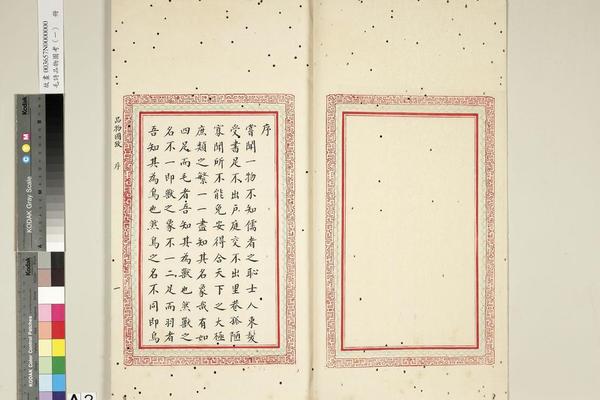 序
嘗聞一物不知儒者之恥士人束髮
受書足不出戶庭交不出里巷孤陋
寡聞所不能免安得合天下之大極
庶類之繁一一盡知其名象哉有如
四足而毛者吾知其為獸也然獸之
名不一即獸之象不一二足而羽者
吾知其為鳥也然鳥之名不同即鳥
品物圖攷 序
一
故畫003657N0000000 冊
毛詩品物圖考(一)
Kodak
KODAK Gray Scale
C
M
A
Kodak
KODAK Color Control Patches
A 2